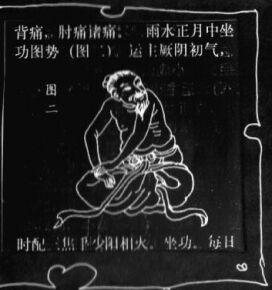 背痛，肘痛诸痛。 雨水正月中坐
功图势（图二） 运主厥阴初气，
图
二
时配三焦手少阳相火。坐功。每日